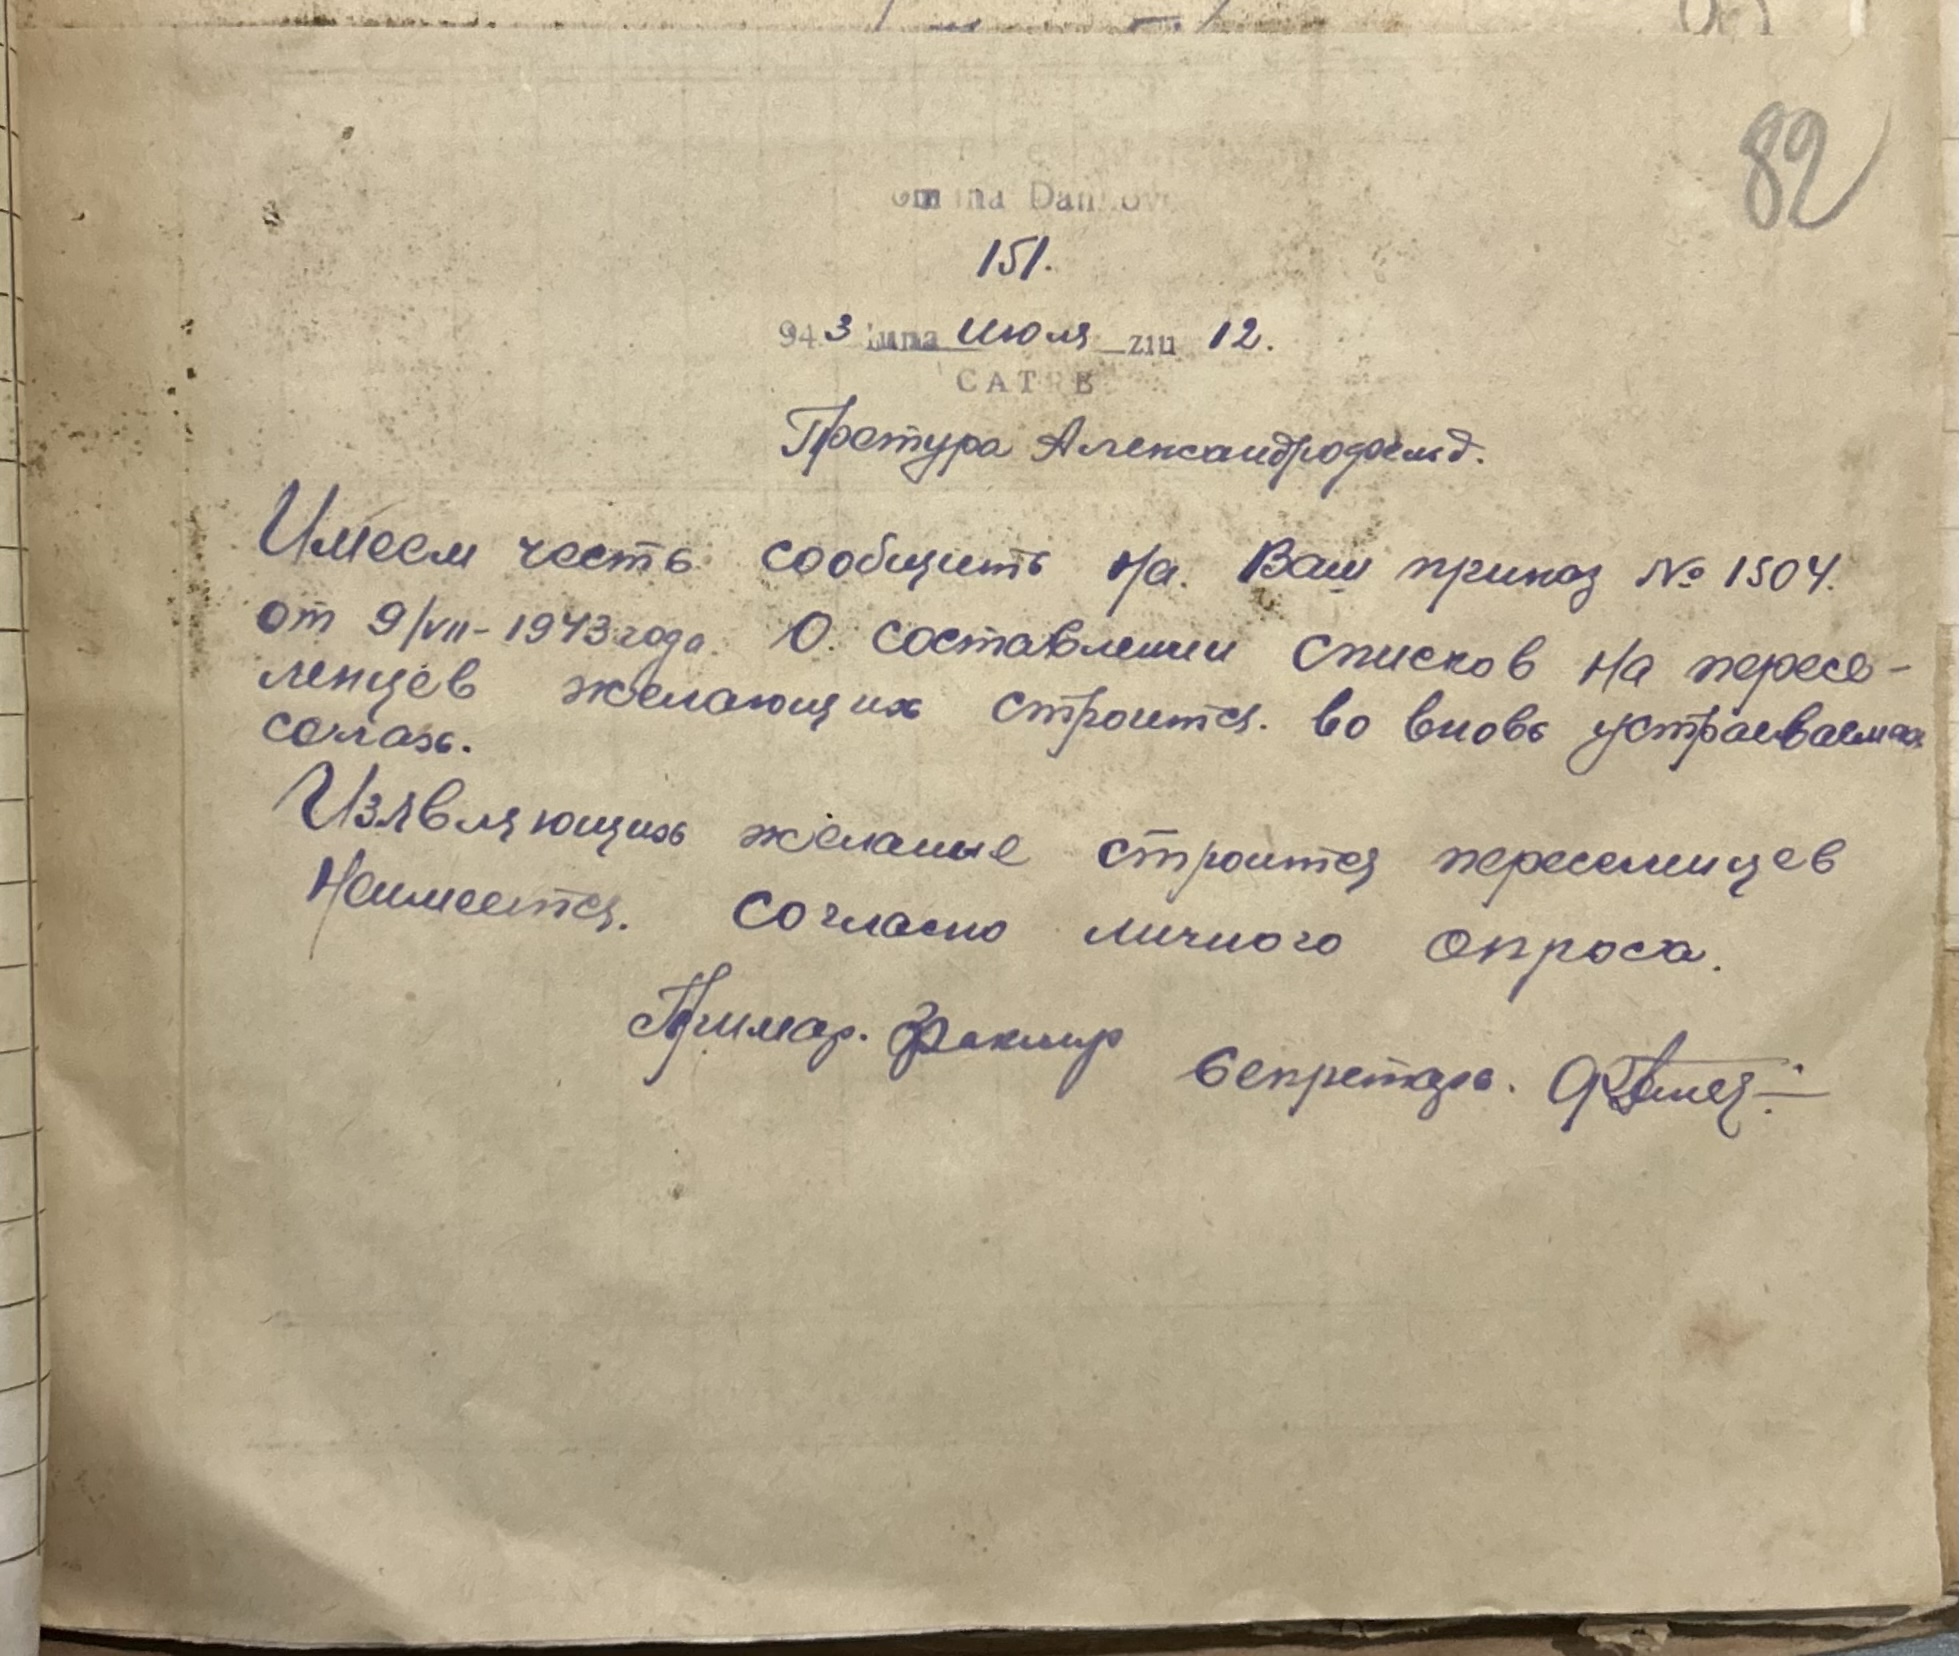 82
151.
943 luna июля ziu 12.
CATRE
Претура Александродфельд.
Имеем честь сообщить на. Ваш приказ № 1504.
от 9/VII-1943 года. О. составлении списков на пересе-
ленцев желающих строится. во вновь устраеваемых
селазь.
Изявляющихь желание строится переселенцев
Неимеется. согласно личного опроса.
Примар.
Секретарь.